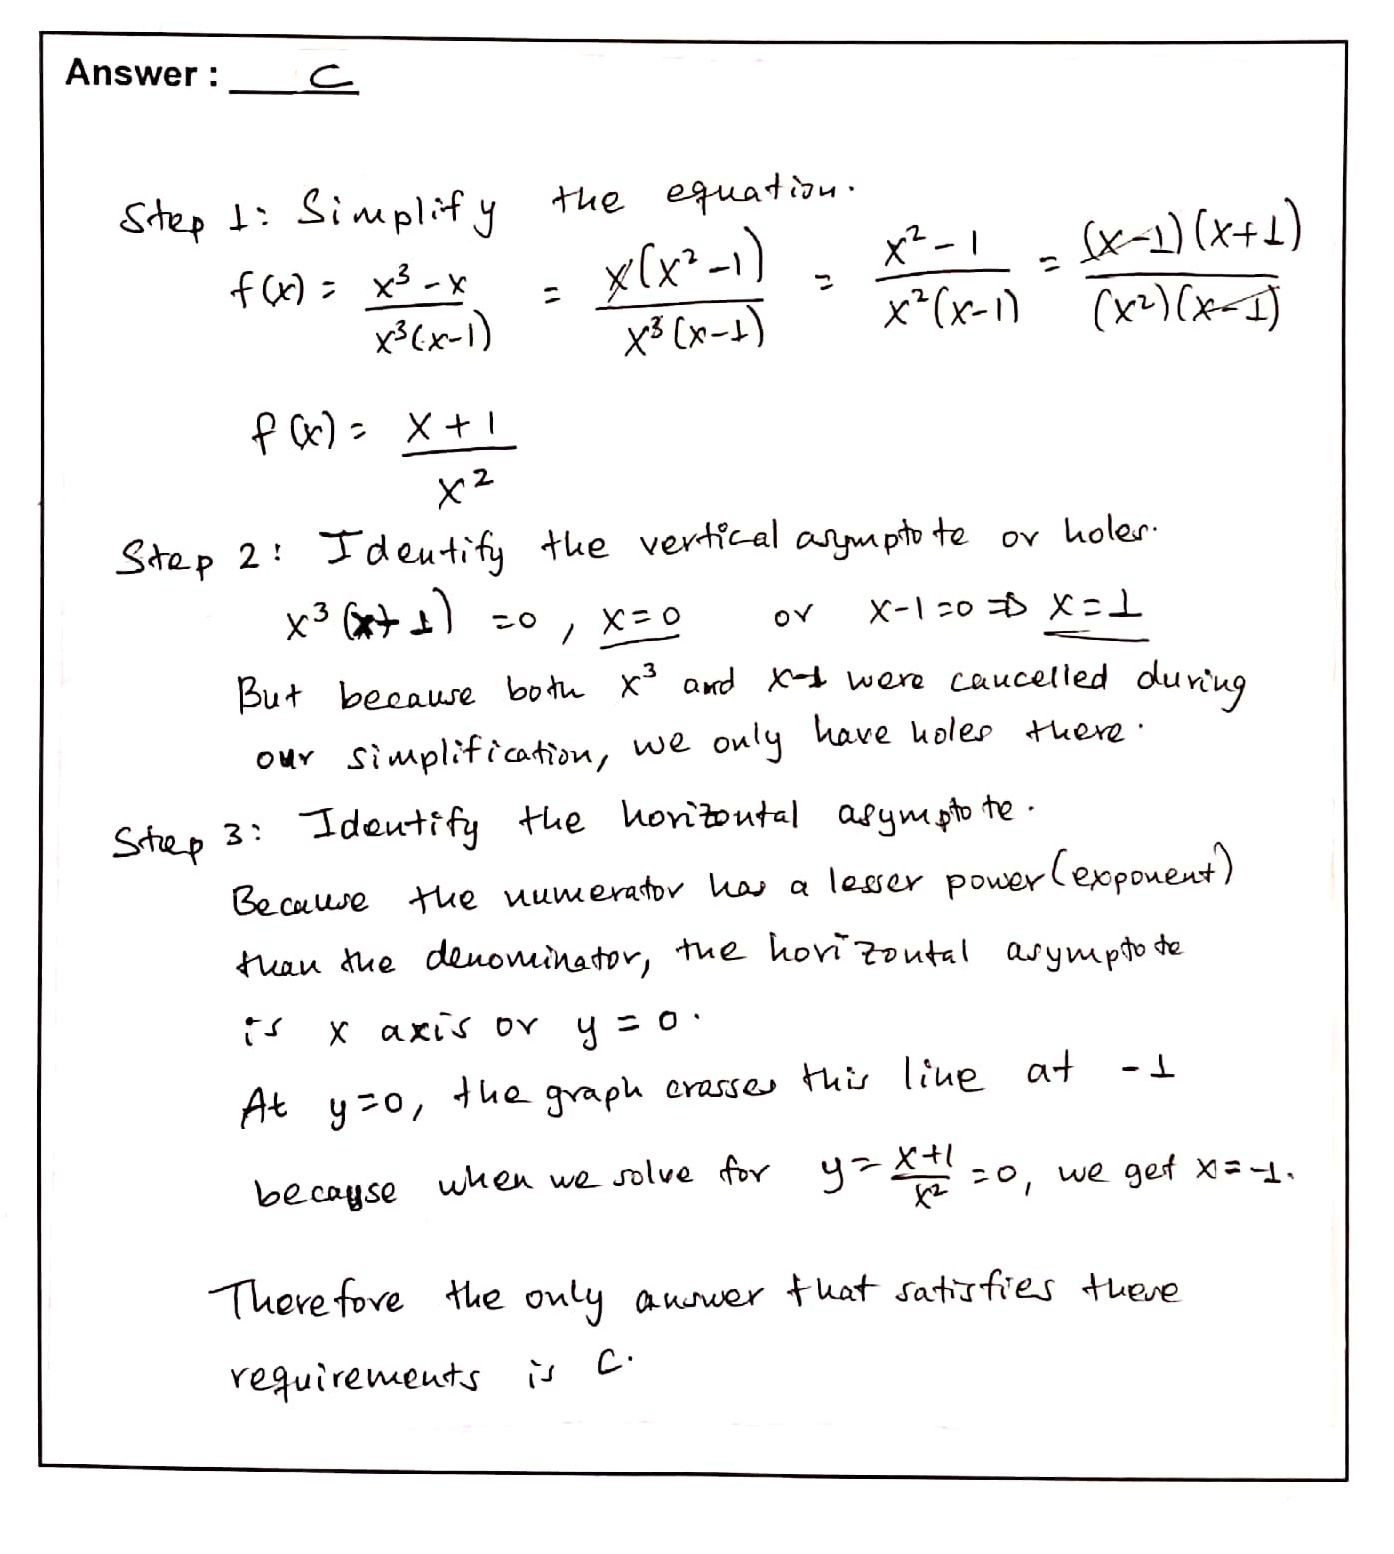 Answer : C
Step 1: Simplify the equation.
f(x) = x³-x / x³(x-1) = x(x²-1) / x³(x-1) = x²-1 / x²(x-1) = (x-1)(x+1) / (x²)(x-1)
f(x) = x+1 / x²
Step 2: Identify the vertical asymptote or holes.
x³(x+1) =0, x=0 or x-1=0 ⇒ x=1
But because both x³ and x-1 were cancelled during
our simplification, we only have holes there.
Step 3: Identify the horizontal asymptote.
Because the numerator has a lesser power (exponent)
than the denominator, the horizontal asymptote
is x axis or y=0.
At y=0, the graph crosses this line at -1
because when we solve for y= x+1 / x² =0, we get x=-1.
Therefore the only answer that satisfies these
requirements is C.